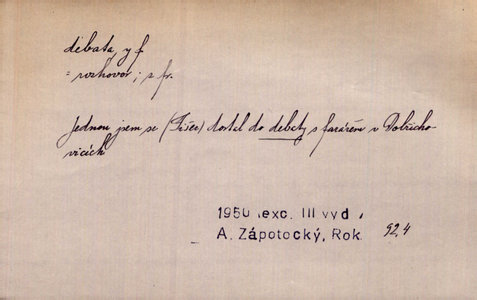 debata, y f.
= rozhovor; z fr.
Jednou jsem se (Fišer) dostal do debaty s farářem v Dobřicho
vicích
1950 exc. III vyd
A. Zápotocký, Rok. 92,4